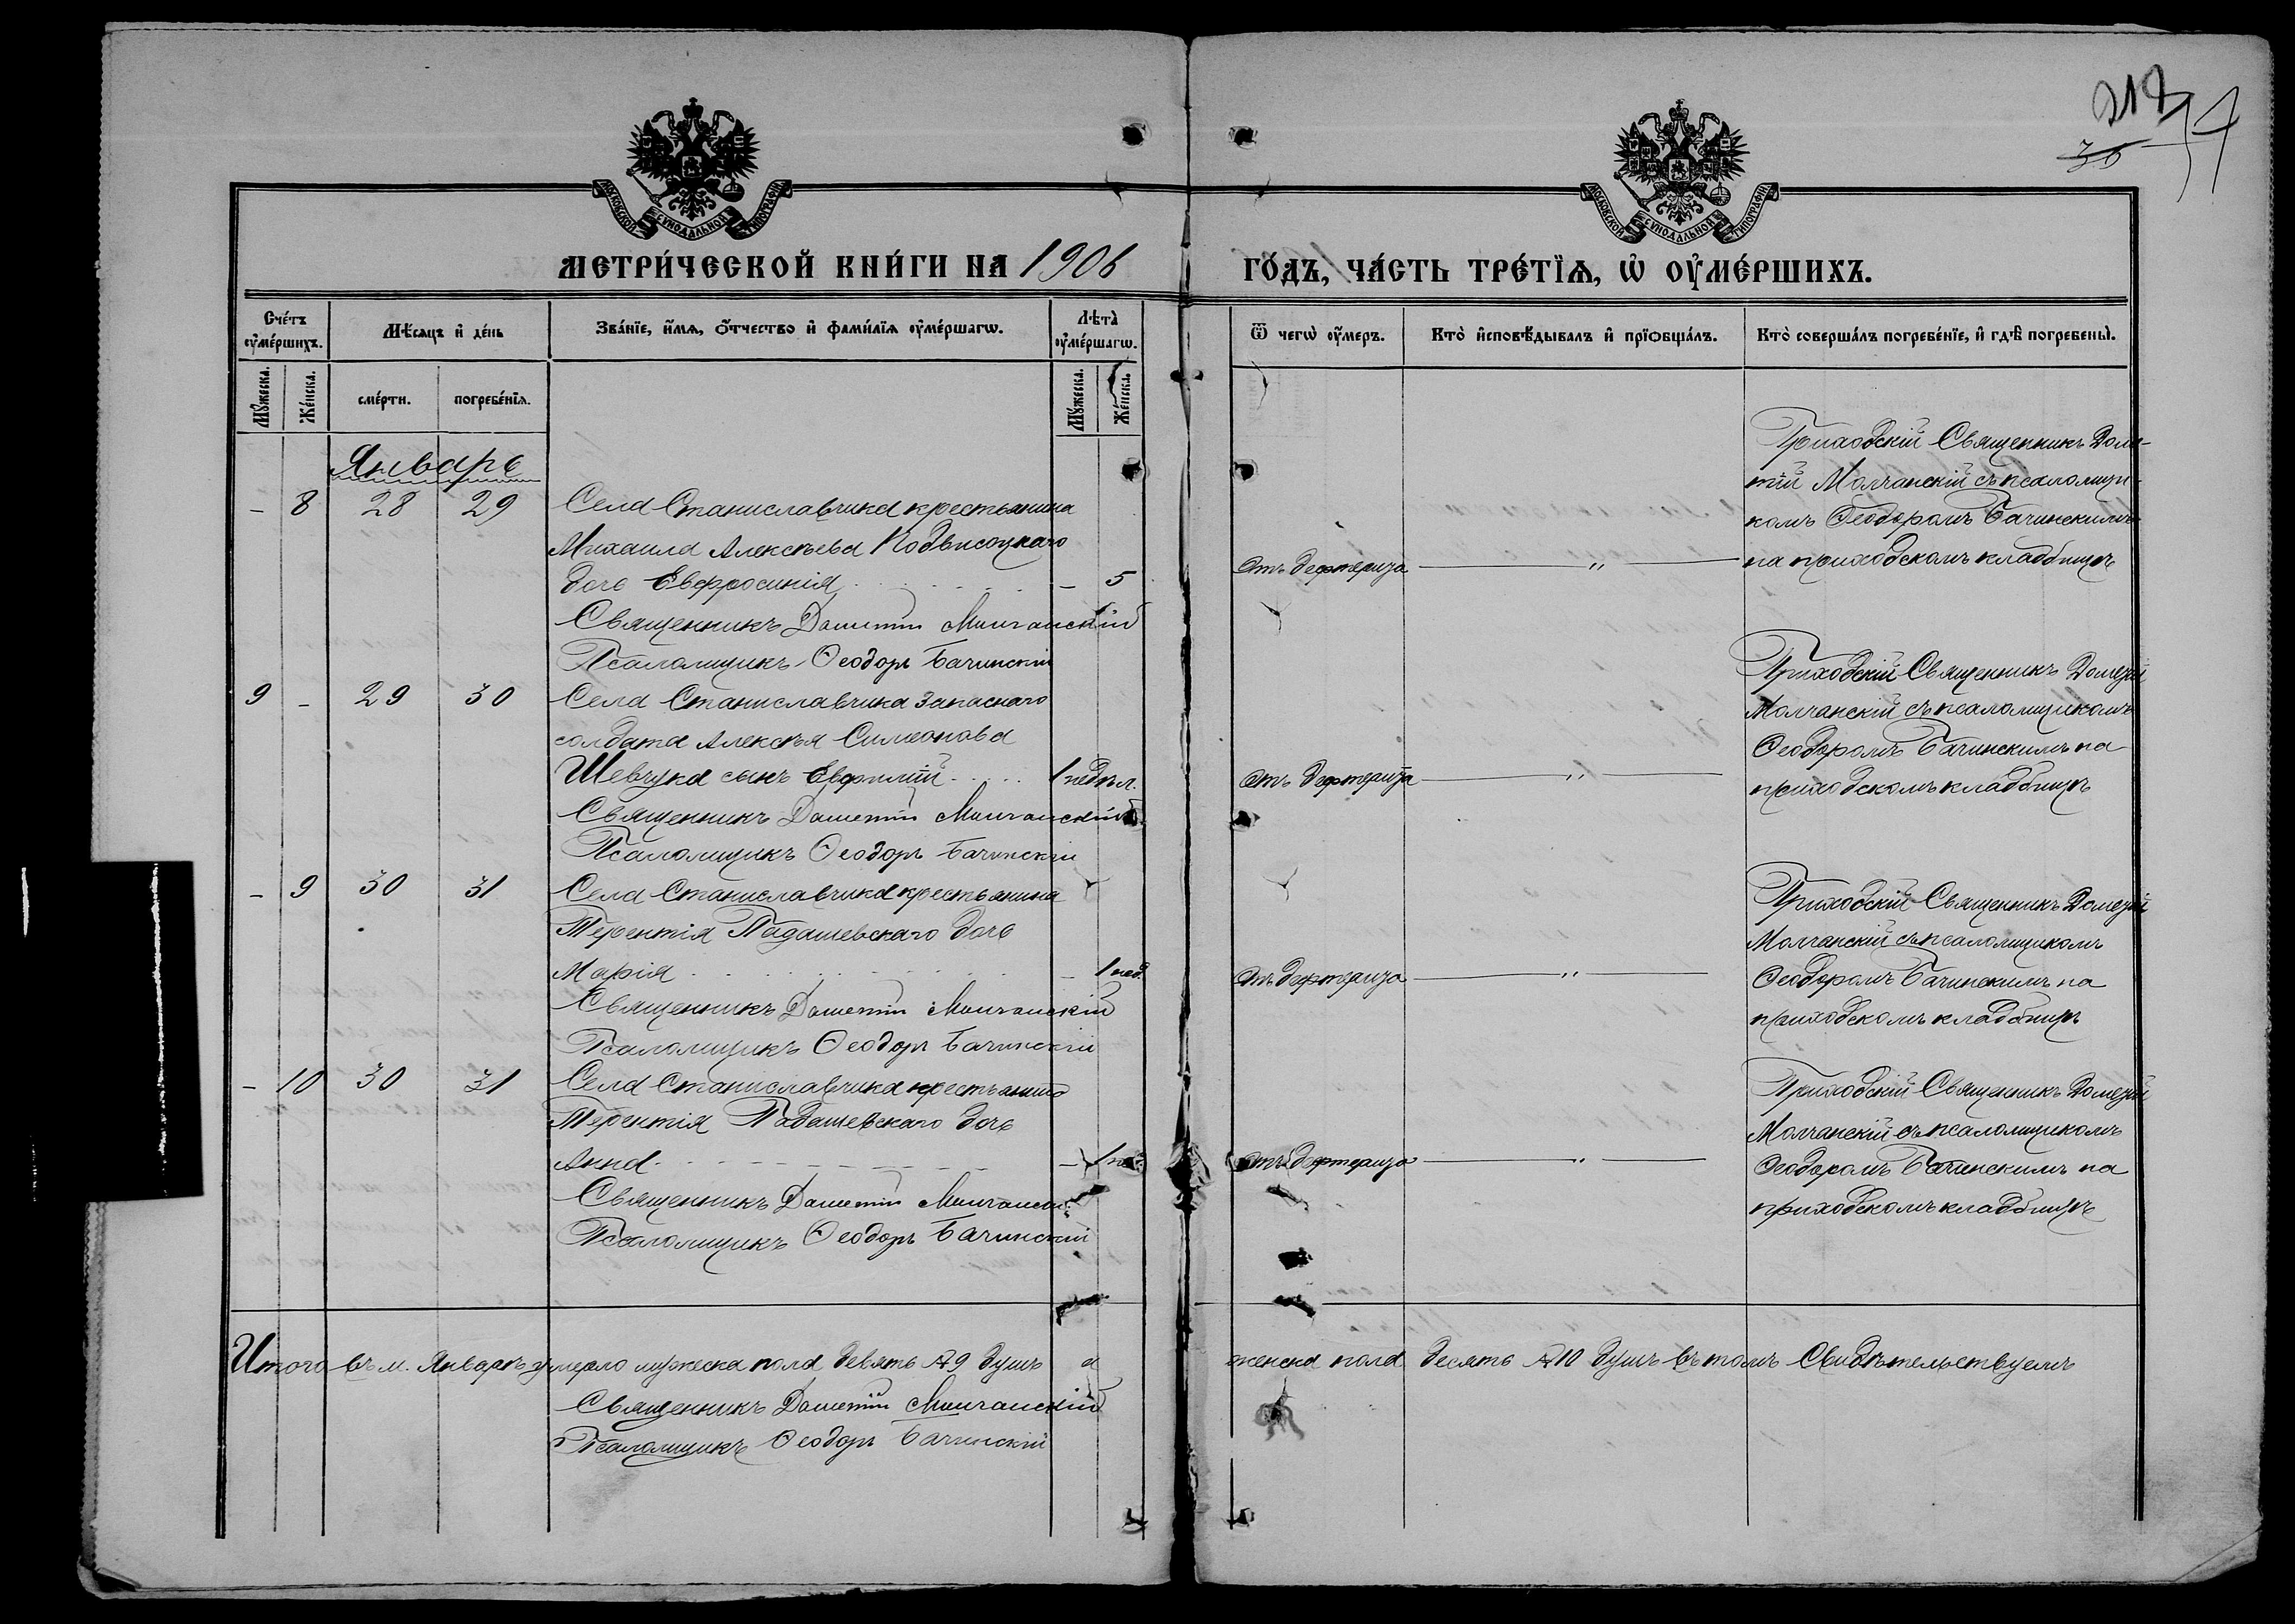 212
36
МОСКОВСКОЙ СУНОДАЛЬНОЙ ТИПОГРАФІИ
МОСКОВСКОЙ СУНОДАЛЬНОЙ ТИПОГРАФІИ
МЕТРИ́ЧЕСКОЙ КНИ́ГИ НА 1906
ГО́ДЪ, ЧА́СТЬ ТРЕ́ТЇѦ, Ѡ҆ ОУ҆МЕ́РШИХЪ.
Сче́тъ оу҆ме́ршихъ.
Мѣ́сѧцъ и҆ де́нь
Зва́нїе, и҆́мѧ, ѻ҆́тчество и҆ фами́лїѧ оу҆ме́ршагѡ.
Лѣ́та оу҆ме́ршагѡ.
Му́жеска.
Же́нска.
сме́рти.
погребе́нїѧ.
Му́жеска.
Же́нска.
Ѿ чегѡ̀ оу҆́меръ.
Кто̀ и҆сповѣ́дывалъ и҆ прїѡбща́лъ.
Кто̀ соверша́лъ погребе́нїе, и҆ гдѣ̀ погребены̀.
Январь
– 8 28 29 Села Станиславчика крестьянина
Михаила Алексѣева Подвисоцкаго
дочь Евфросинія – 5
Священникъ Дометій Молчанскій
Псаломщикъ Ѳеодоръ Бачинскій
Отъ дефтерита „
Приходскій Священникъ Доме-
тій Молчанскій съ псаломщи-
комъ Ѳеодоромъ Бачинскимъ
на приходскомъ кладбищѣ
9 – 29 30 Села Станиславчика запаснаго
солдата Алексѣя Симеонова
Шевчука сынъ Евфимій 1 недѣл.
Священникъ Дометій Молчанскій
Псаломщикъ Ѳеодоръ Бачинскій
Отъ дефтерита „
Приходскій Священникъ Дометій
Молчанскій съ псаломщикомъ
Ѳеодоромъ Бачинскимъ на
приходскомъ кладбищѣ
– 9 30 31 Села Станиславчика крестьянина
Терентія Падашевскаго дочь
Марія – 1 нед.
Священникъ Дометій Молчанскій
Псаломщикъ Ѳеодоръ Бачинскій
Отъ дефтерита „
Приходскій Священникъ Дометій
Молчанскій съ псаломщикомъ
Ѳеодоромъ Бачинскимъ на
приходскомъ кладбищѣ
– 10 30 31 Села Станиславчика крестьянина
Терентія Падашевскаго дочь
Анна – 1 нед.
Священникъ Дометій Молчанскій
Псаломщикъ Ѳеодоръ Бачинскій
Отъ дефтерита „
Приходскій Священникъ Дометій
Молчанскій съ псаломщикомъ
Ѳеодоромъ Бачинскимъ на
приходскомъ кладбищѣ
Итого въ м. Январѣ умерло мужеска пола девять 9 душъ а
женска пола десять 10 душъ въ томъ Свидѣтельствуемъ
Священникъ Дометій Молчанскій
Псаломщикъ Ѳеодоръ Бачинскій